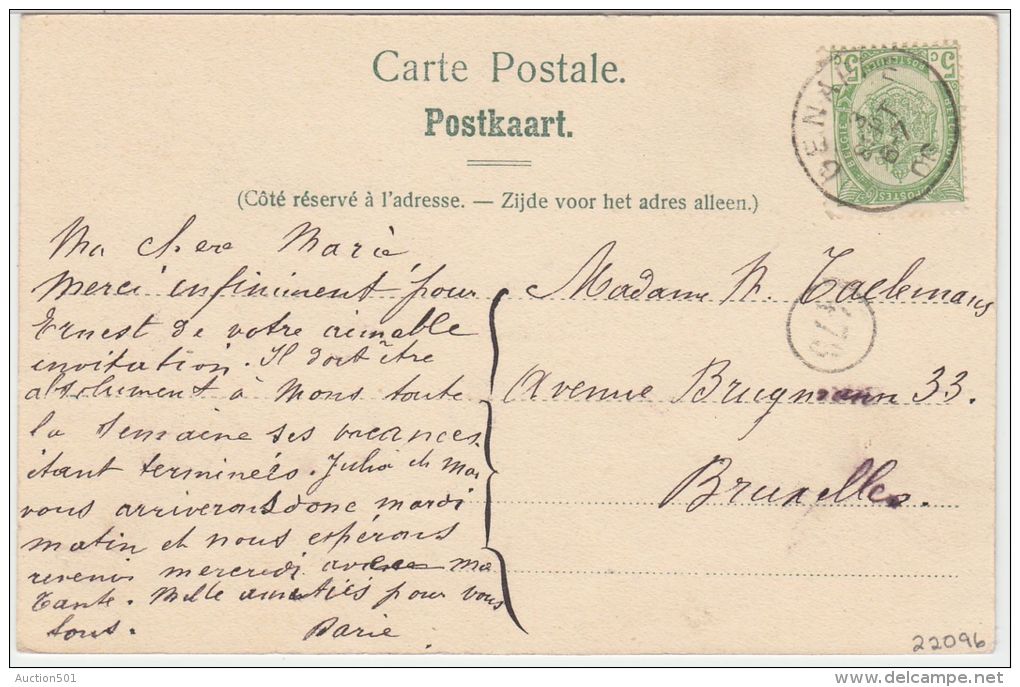 Carte Postale.
Postkaart.
(Côté réservé à l'adresse. — Zijde voor het adres alleen.)
Ma chere Marie
Merci infiniment pour
Ernest de votre aimable
invitation. Il doit être
absolument à Mons toute
la semaine ses vacances
étant terminées. Julia et moi
vous arriverons donc mardi
matin et nous espérons
revenir mercredi avec ma
tante. Mille amitiés pour vous
tous.
Madame Taelemans
Avenue Brugmann 33.
Bruxelles.
5 c 5 c
22096
Auction501
delcampe.net